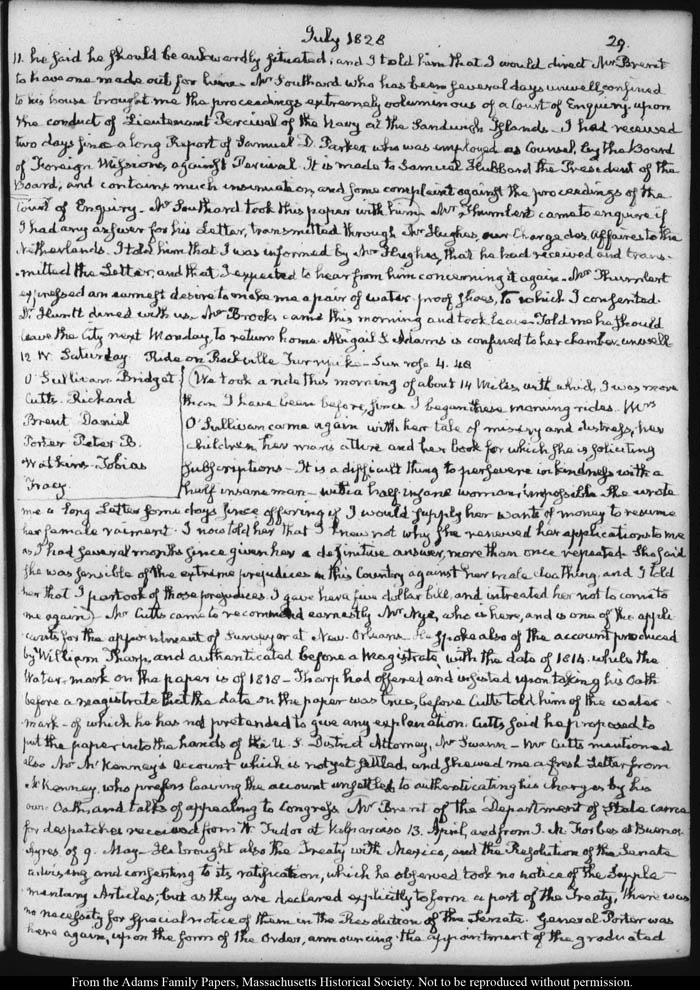 July 1828
29.
11. he said he should be awkwardly situated; and I told him that I would direct Mr Brent
to have one made out for him. Mr Southard who has been several days unwell, confined
to his house brought me the proceedings extremely voluminous of a Court of Enquiry, upon
the conduct of Lieutenant Percival of the Navy at the Sandwich Islands. I had received
two days since a long Report of Samuel D. Parker who was employed as Counsel, by the Board
of Foreign Missions, against Percival. It is made to Samuel Hubbard the President of the
Board, and contains much insinuation, and some complaint against the proceedings of the
Court of Enquiry. Mr Southard took this paper with him. Mr Thurnbert came to enquire if
I had any answer for his Letter, transmitted through Mr Hughes, our Chargé des Affaires to the
Netherlands. I told him that I was informed by Mr Hughes, that he had received and trans-
-mitted the Letter, and that I expected to hear from him concerning it again. Mr Thurnbert
expressed an earnest desire to make me a pair of water-proof shoes, to which I consented.
Dr Huntt dined with us. Mr Brooks came this morning and took leave. Told me he should
leave the City next Monday, to return home. Abigail S. Adams is confined to her chamber, unwell
12. IV. Saturday. Ride on Rockville Turnpike. Sun rose 4. 48
O'Sullivan. Bridget
Cutts. Richard
Brent Daniel
Porter Peter B.
Watkins. Tobias
Tracy
We took a ride this morning of about 14 Miles, with which, I was more
than I have been before, since I began these morning rides. Mrs
O'Sullivan came again with her tale of misery and distress, her
children her mans attire and her book for which she is soliciting
subscriptions. It is a difficult thing to persevere in kindness with a
half insane man. with a half insane woman impossible. She wrote
me a long Letter some days since offering if I would supply her wants of money to resume
her female raiment. I now told her that I knew not why she renewed her applications to me
as I had several months since given her a definitive answer, more than once repeated. She said
she was sensible of the extreme prejudices in this Country against her male cloathing. and I told
her that I partook of those prejudices. I gave her a five dollar bill, and intreated her not to come to
me again. Mr Cutts came to recommend earnestly Mr Nye, who is here, and is one of the appli-
-cants for the appointment of Surveyor at New-Orleans. He spoke also of the account produced
by William Tharp, and authenticated before a Magistrate, with the date of 1814. while the
Water-mark on the paper is of 1818. Tharp had offered and insisted upon taking his Oath
before a magistrate that the date on the paper was true, before Cutts told him of the water-
mark. of which he has not pretended to give any explanation. Cutts said he proposed to
put the paper into the hands of the U.S. District Attorney, Mr Swann. Mr Cutts mentioned
also Mr McKenney's account which is not yet settled, and shewed me a fresh Letter from
McKenney, who prefers leaving the account unsettled to authenticating his charges by his
own Oath, and talks of appealing to Congress. Mr Brent of the Department of State came
for despatches received from W. Tudor at Valparaiso 13. April, and from J. M. Forbes at Buenos-
Ayres of 9. May. He brought also the Treaty with Mexico, and the Resolution of the Senate
advising and consenting to its ratification, which he observed took no notice of the Supple-
mentary Articles; but as they are declared explicitly to form a part of the Treaty, there was
no necessity for special notice of them in the Resolution of the Senate. General Porter was
here again, upon the form of the Order, announcing the appointment of the graduated
From the Adams Family Papers, Massachusetts Historical Society. Not to be reproduced without permission.